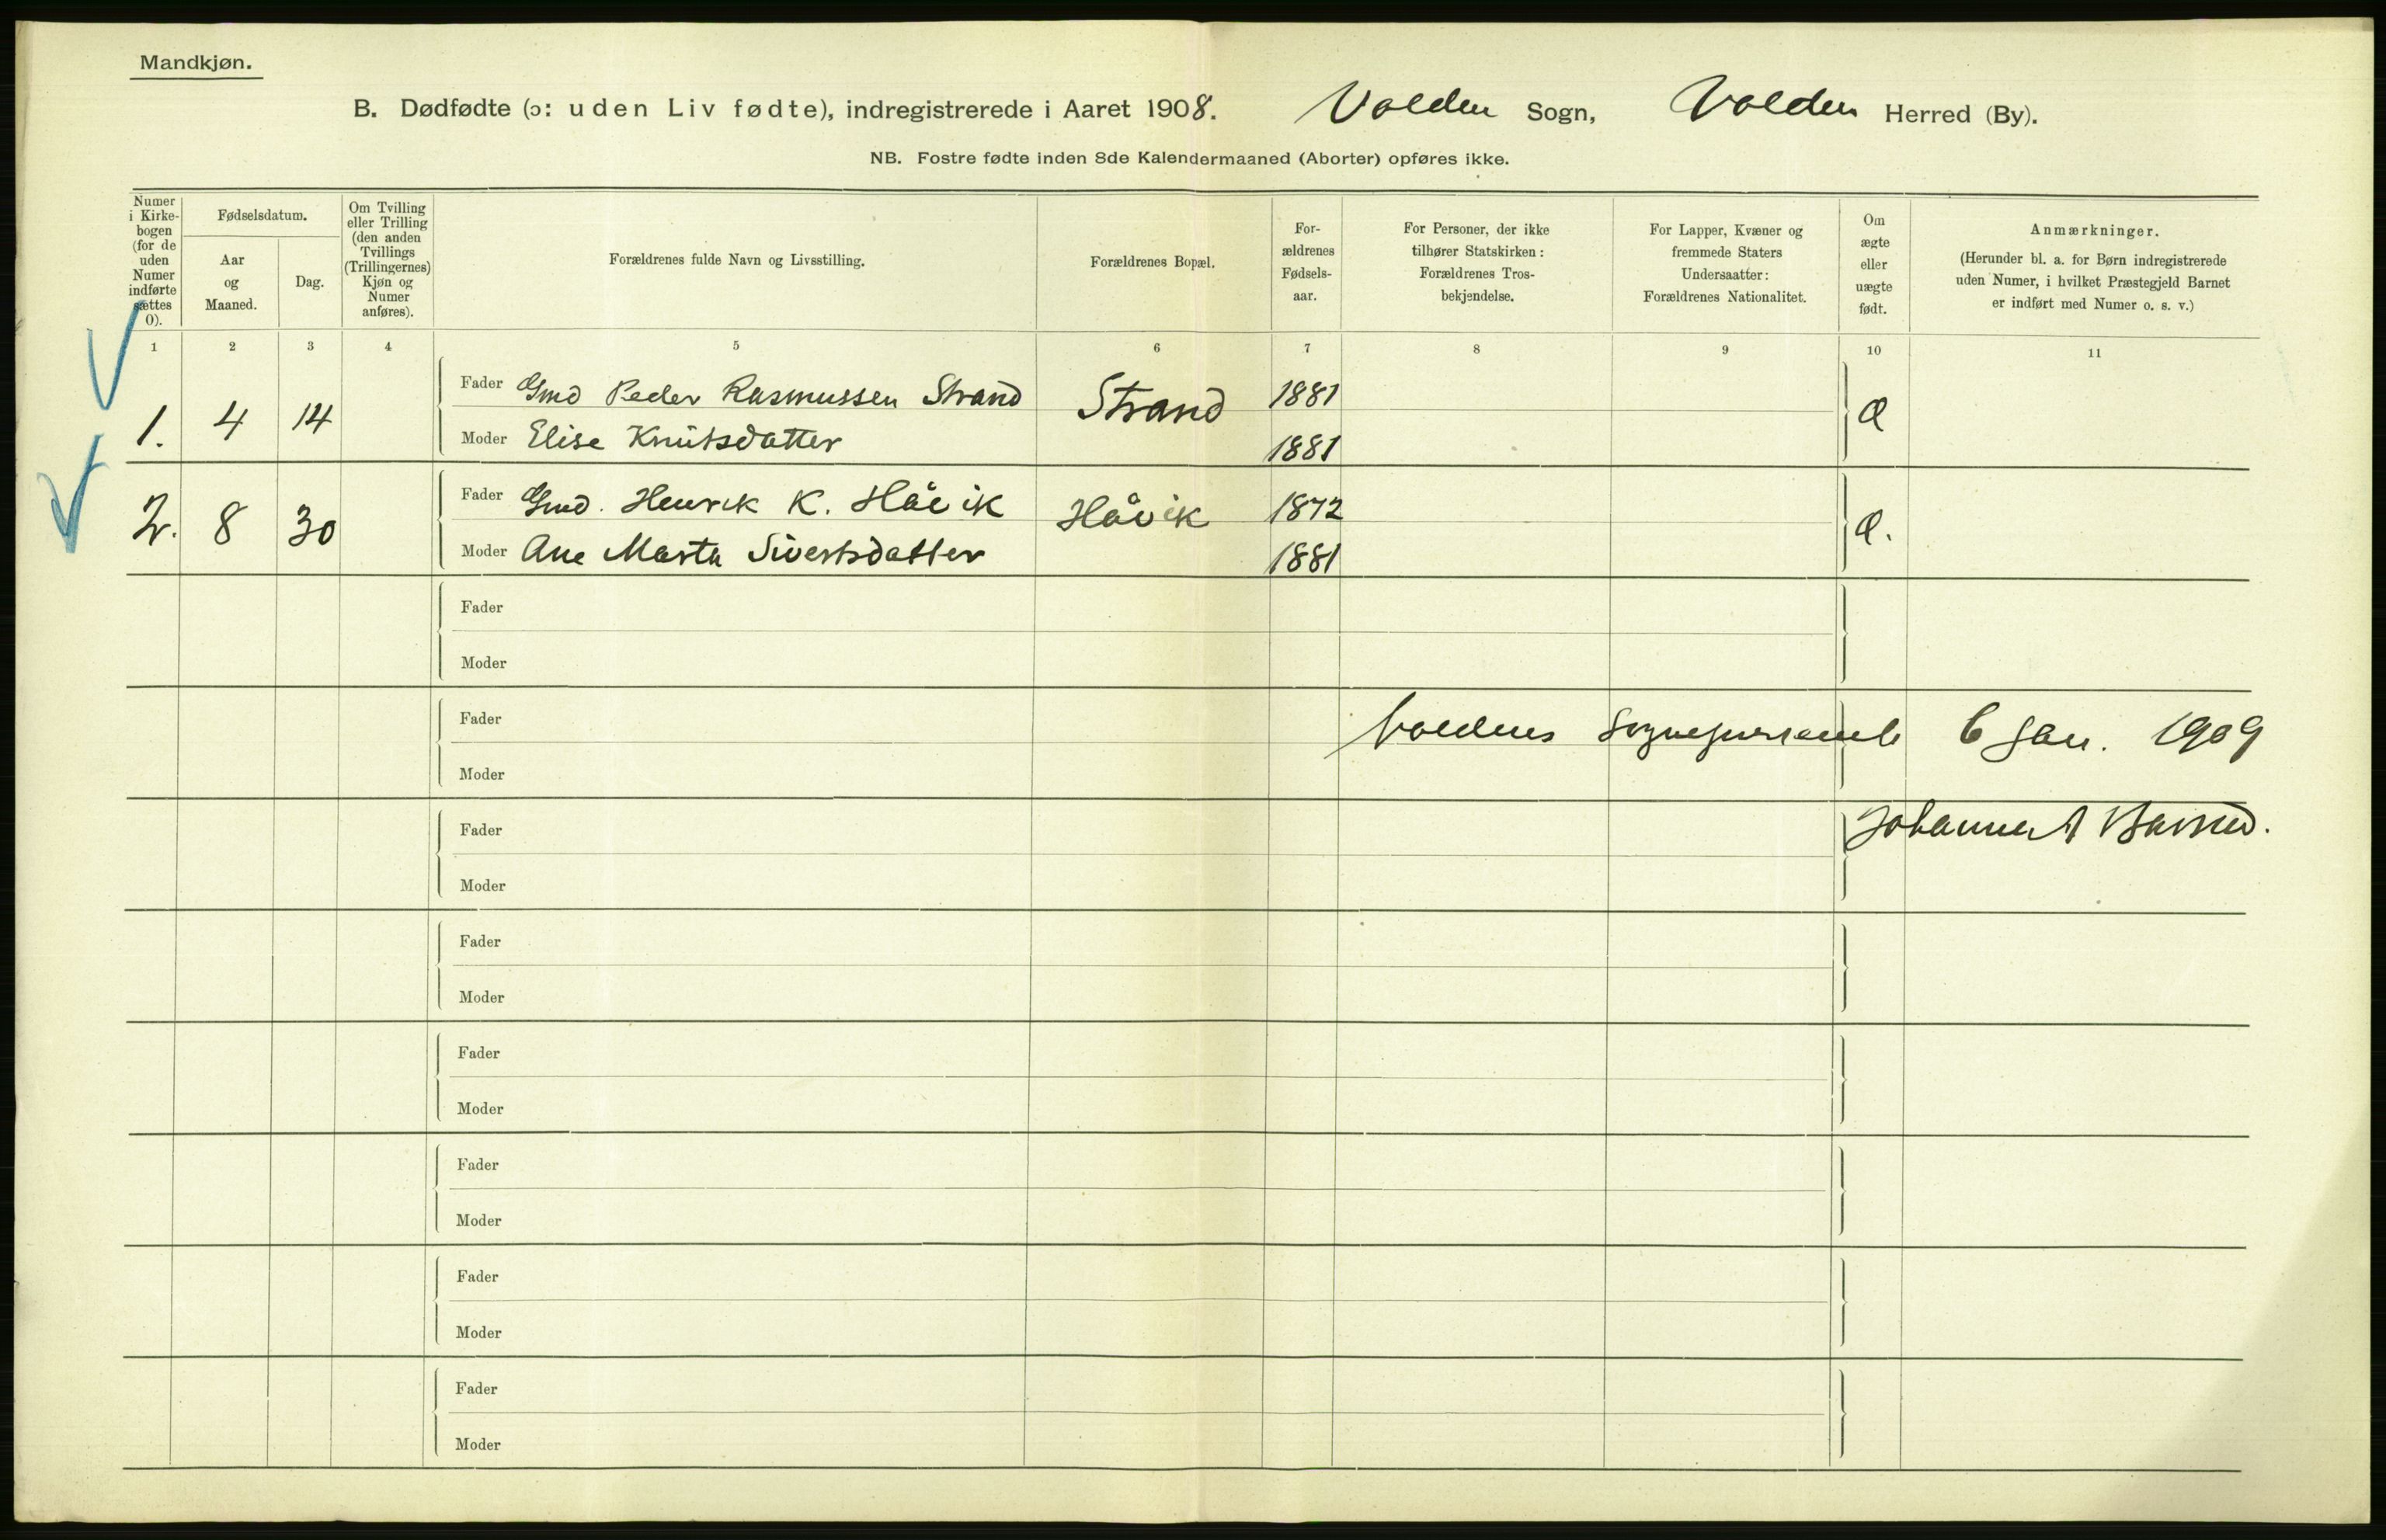 Mandkjøn.
B. Dødfødte (ɔ: uden Liv fødte), indregistrerede i Aaret 1908. Volden Sogn, Volden Herred (By).
NB. Fostre fødte inden 8de Kalendermaaned (Aborter) opføres ikke.
Numer
i Kirke-
bogen
(for de
uden
Numer
indførte
sættes
0).
Fødselsdatum.
Aar
og
Maaned.
Dag.
Om Tvilling
eller Trilling
(den anden
Tvillings
(Trillingernes)
Kjøn og
Numer
anføres).
Forældrenes fulde Navn og Livsstilling.
Forældrenes Bopæl.
For-
ældrenes
Fødsels-
aar.
For Personer, der ikke
tilhører Statskirken:
Forældrenes Tros-
bekjendelse.
For Lapper, Kvæner og
fremmede Staters
Undersaatter:
Forældrenes Nationalitet.
Om
ægte
eller
uægte
født.
Anmærkninger.
(Herunder bl. a. for Børn indregistrerede
uden Numer, i hvilket Præstegjeld Barnet
er indført med Numer o. s. v.)
1 2 3 4 5 6 7 8 9 10 11
Fader Gmd Peder Rasmussen Strand 1881
1. 4 14 Strand Æ
Moder Elise Knutsdatter 1881
Fader Gmd. Henrik K. Håvik 1872
2. 8 30 Håvik Æ.
Moder Ane Marta Sivertsdatter 1881
Fader
Moder
Fader
Voldens 6 Jan. 1909
Moder
Fader
Johannes
Moder
Fader
Moder
Fader
Moder
Fader
Moder
Fader
Moder
Fader
Moder